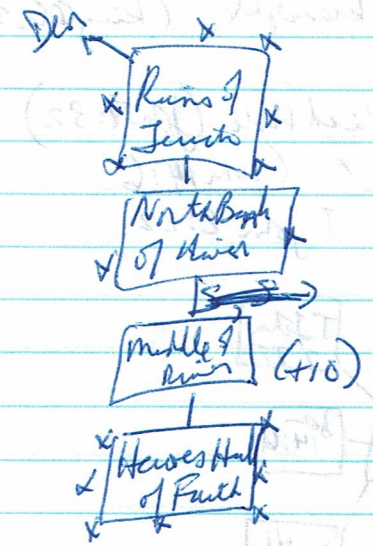 Den
Ruins of
North Bank
of River
Middle of
River (+10)
Heroes Hall
of Faith